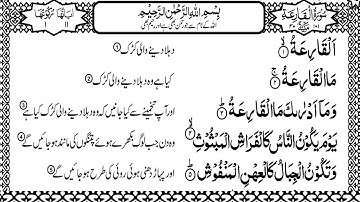 سُوْرَةُ الْقَارِعَةِ
بِسْمِ اللّٰهِ الرَّحْمٰنِ الرَّحِيْمِ
اَلْقَارِعَةُ ۙ۱
دہلا دینے والی کڑک ۱
مَا الْقَارِعَةُ ۚ۲
کیا ہے وہ دہلا دینے والی کڑک ۲
وَمَاۤ اَدْرٰىكَ مَا الْقَارِعَةُ ؕ۳
اور آپ تخمینے سے کیا جانیں کہ وہ دہلا دینے والی کڑک کیا ہے ۳
يَوْمَ يَكُوْنُ النَّاسُ كَالْفَرَاشِ الْمَبْثُوْثِ ۙ۴
وہ دن جب لوگ بکھرے ہوئے پتنگوں کی مانند ہو جائیں گے ۴
وَتَكُوْنُ الْجِبَالُ كَالْعِهْنِ الْمَنْفُوْشِ ؕ۵
اور پہاڑ دھنی ہوئی روئی کی طرح ہو جائیں گے ۵